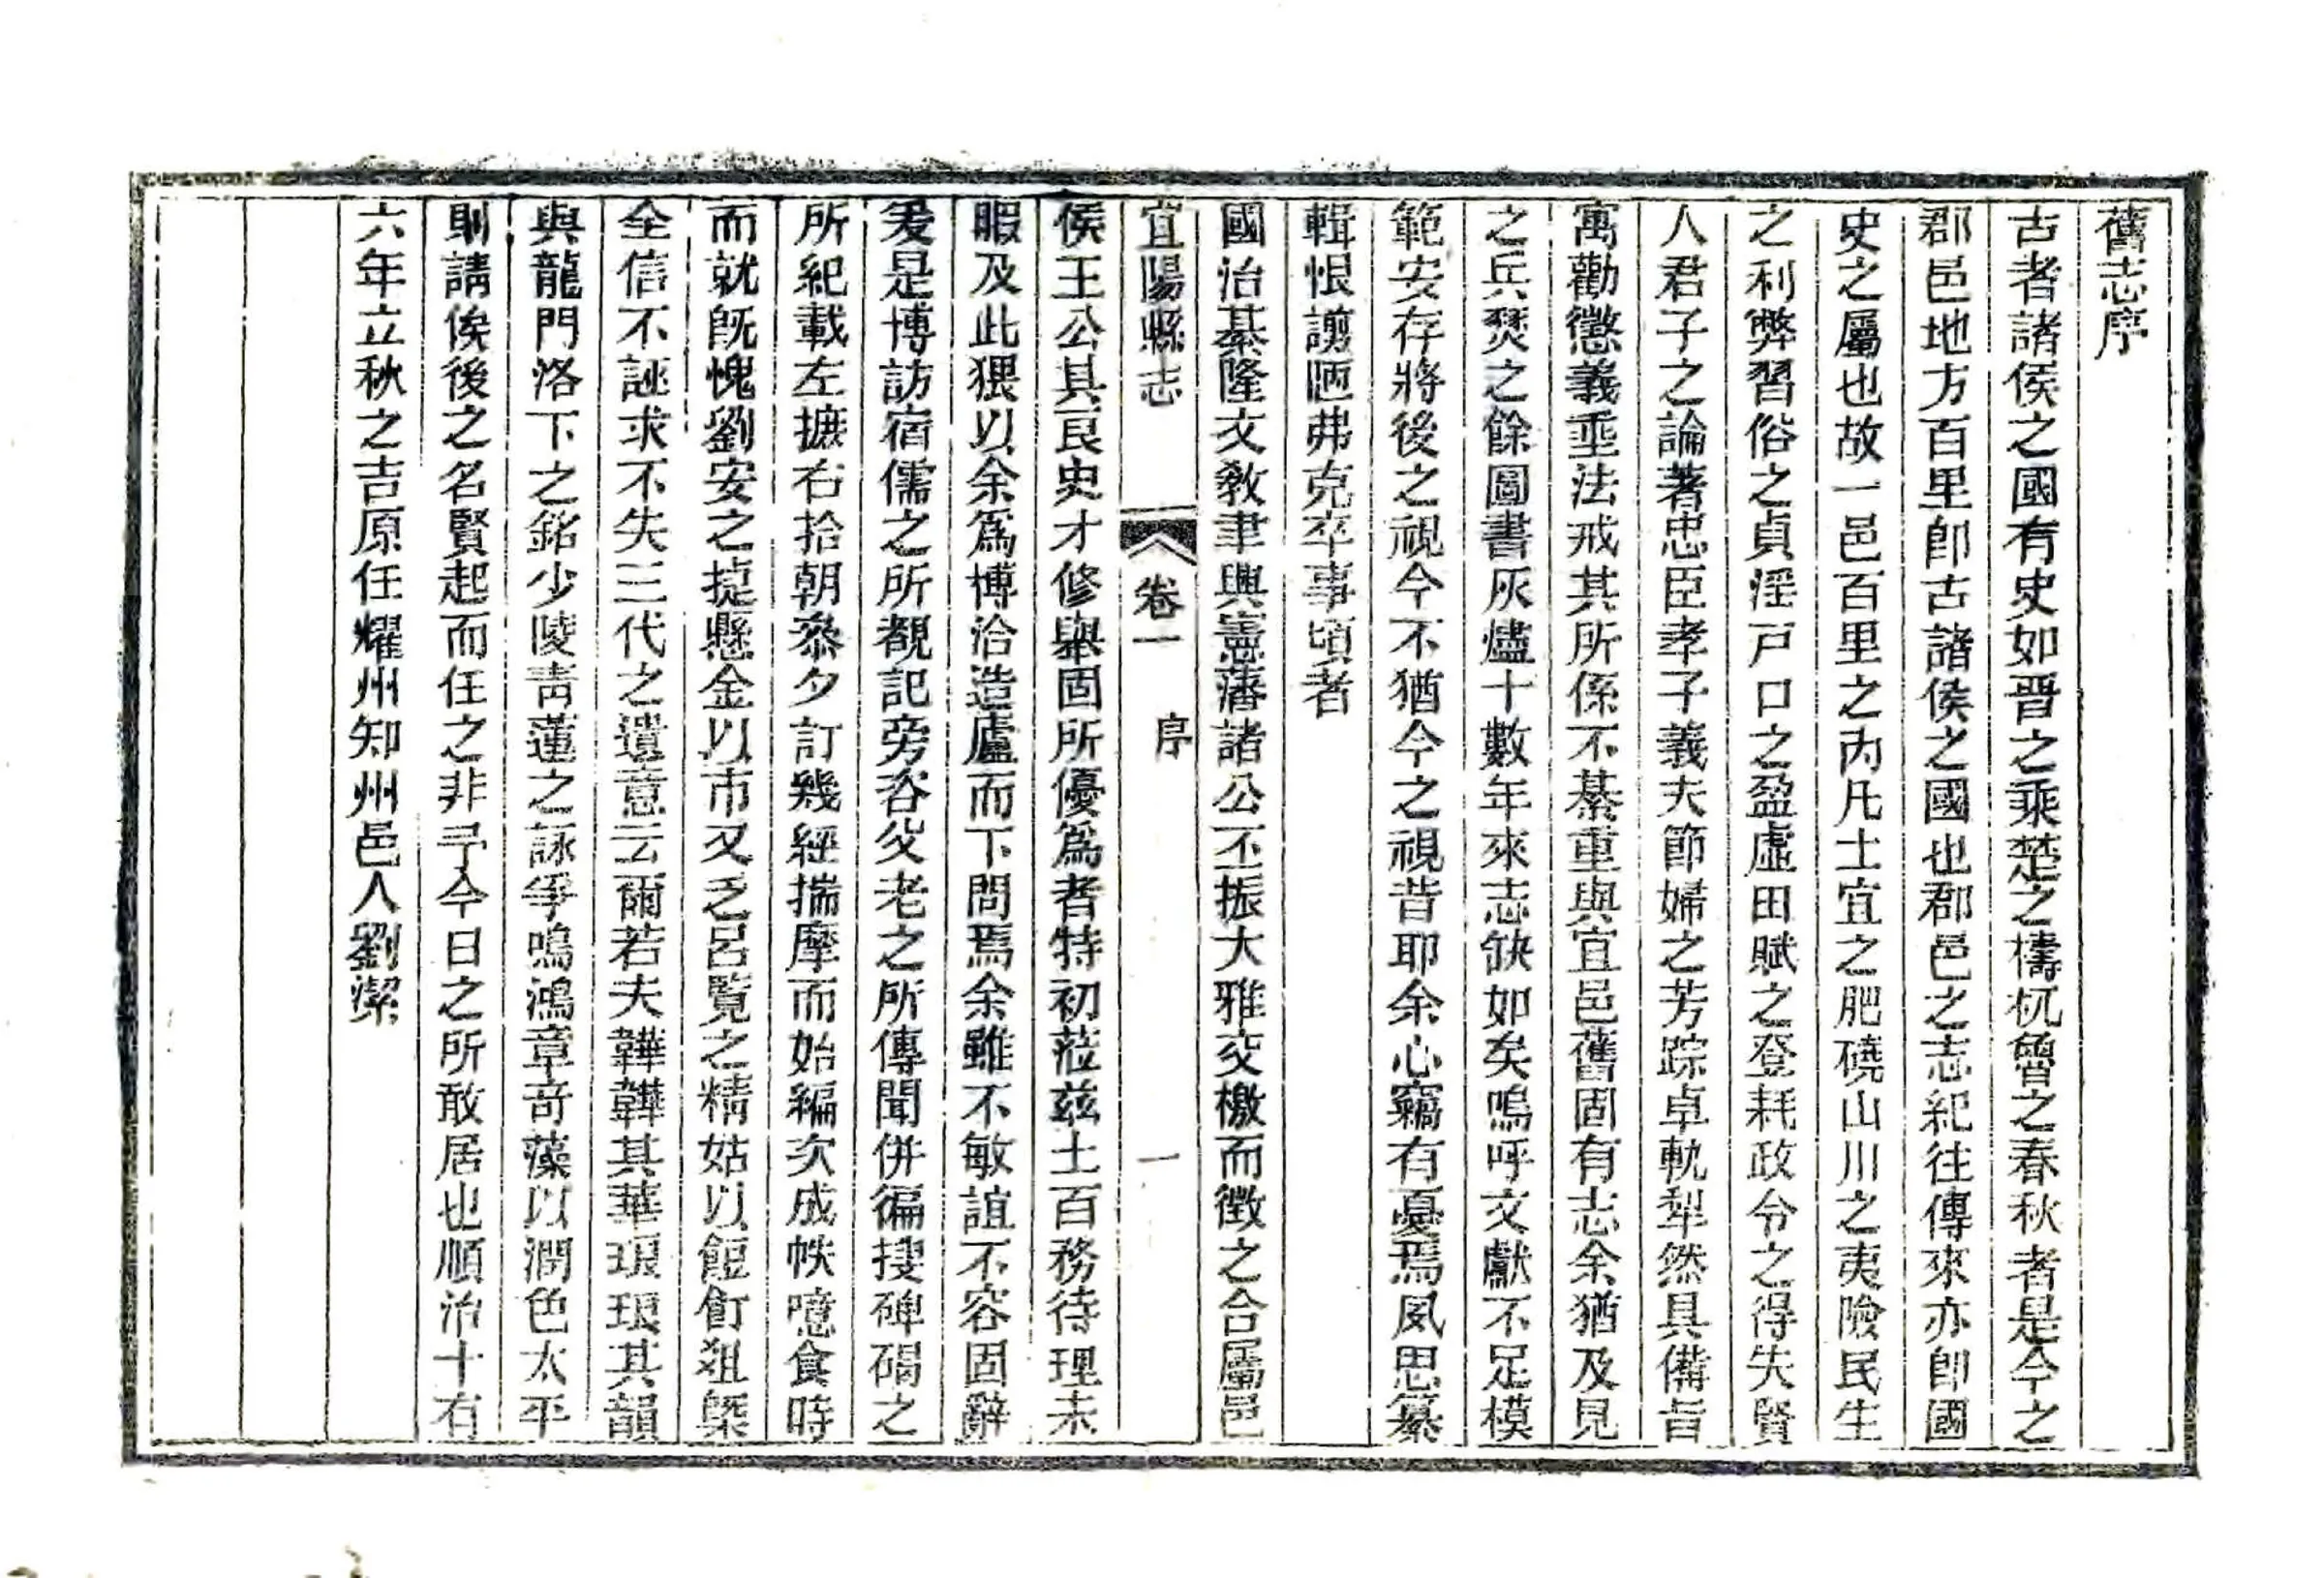 舊志序
古者諸侯之國有史如晋之乘楚之檮杌魯之春秋者是今之
郡邑地方百里卽古諸侯之國也郡邑之志紀往傳來亦卽國
史之屬也故一邑百里之內凡土宜之肥磽山川之夷險民生
之利弊習俗之貞淫戸口之盈虛田賦之登耗政令之得失賢
人君子之論著忠臣孝子義夫節婦之芳踪卓軌犁然具備旨
寓勸懲義垂法戒其所係不綦重與宜邑舊固有志余猶及見
之兵燹之餘圖書灰燼十數年來志缺如矣嗚呼文獻不足模
範安存將後之視今不猶今之視昔耶余心竊有憂焉夙思纂
輯恨謭陋弗克卒事頃者
國治綦隆文敎聿興憲藩諸公丕振大雅交檄而徵之合屬邑
宜陽縣志 卷一 序 一
侯王公其良史才修舉固所優爲者特初蒞茲土百務待理未
暇及此猥以余爲博洽造廬而下問焉余雖不敏誼不容固辭
爰是博訪宿儒之所覩記旁咨父老之所傳聞併徧搜碑碣之
所紀載左摭右拾朝叅夕訂幾經揣摩而始編次成帙噫食時
而就旣愧劉安之㨗懸金以市又乏呂覽之精姑以餖飣俎槩
全信不誣求不失三代之遺意云爾若夫韡韡其華琅琅其韻
與龍門洛下之銘少陵靑蓮之詠爭鳴鴻章奇藻以潤色太平
則請俟後之名賢起而任之非予今日之所敢居也順治十有
六年立秋之吉原任耀州知州邑人劉潔